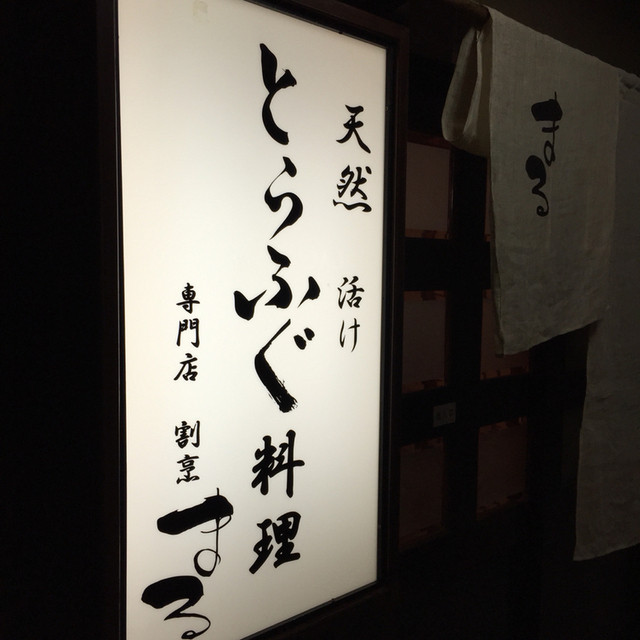 天然 活け
とらふぐ料理
専門店 割烹 まる
まる